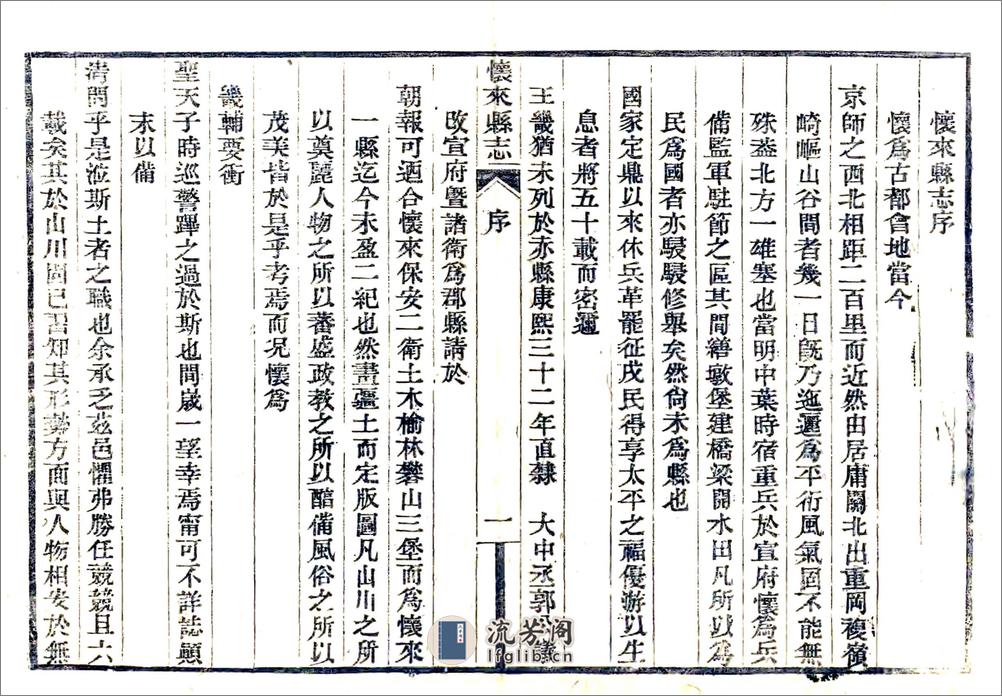 懷來縣志序
懷爲古都會地當今
京師之西北相距二百里而近然由居庸關北出重岡複嶺
崎嶇山谷間者幾一日旣乃迤邐爲平衍風氣固不能無
殊葢北方一雄塞也當明中葉時宿重兵於宣府懷爲兵
備監軍駐節之區其間繕墩堡建橋梁開水田凡所以爲
民爲國者亦駸駸修舉矣然尙未爲縣也
國家定鼎以來休兵革罷征戍民得享太平之福優游以生
息者將五十載而密邇
王畿猶未列於赤縣康熙三十二年直隸 大中丞郭公議
懷來縣志 序 一
改宣府暨諸衛爲郡縣請於
朝報可迺合懷來保安二衛土木榆林礬山三堡而爲懷來
一縣迄今未盈二紀也然畫疆土而定版圖凡山川之所
以奠麗人物之所以蕃盛政教之所以醕備風俗之所以
茂美皆於是乎考焉而况懷爲
畿輔要衝
聖天子時巡警蹕之過於斯也間歲一望幸焉甯可不詳誌顚
末以備
淸問乎是涖斯土者之職也余承乏茲邑懼弗勝任兢兢且六
載矣其於山川固已習知其形勢方面與人物相安於無
流芳阁
lfglib.cn